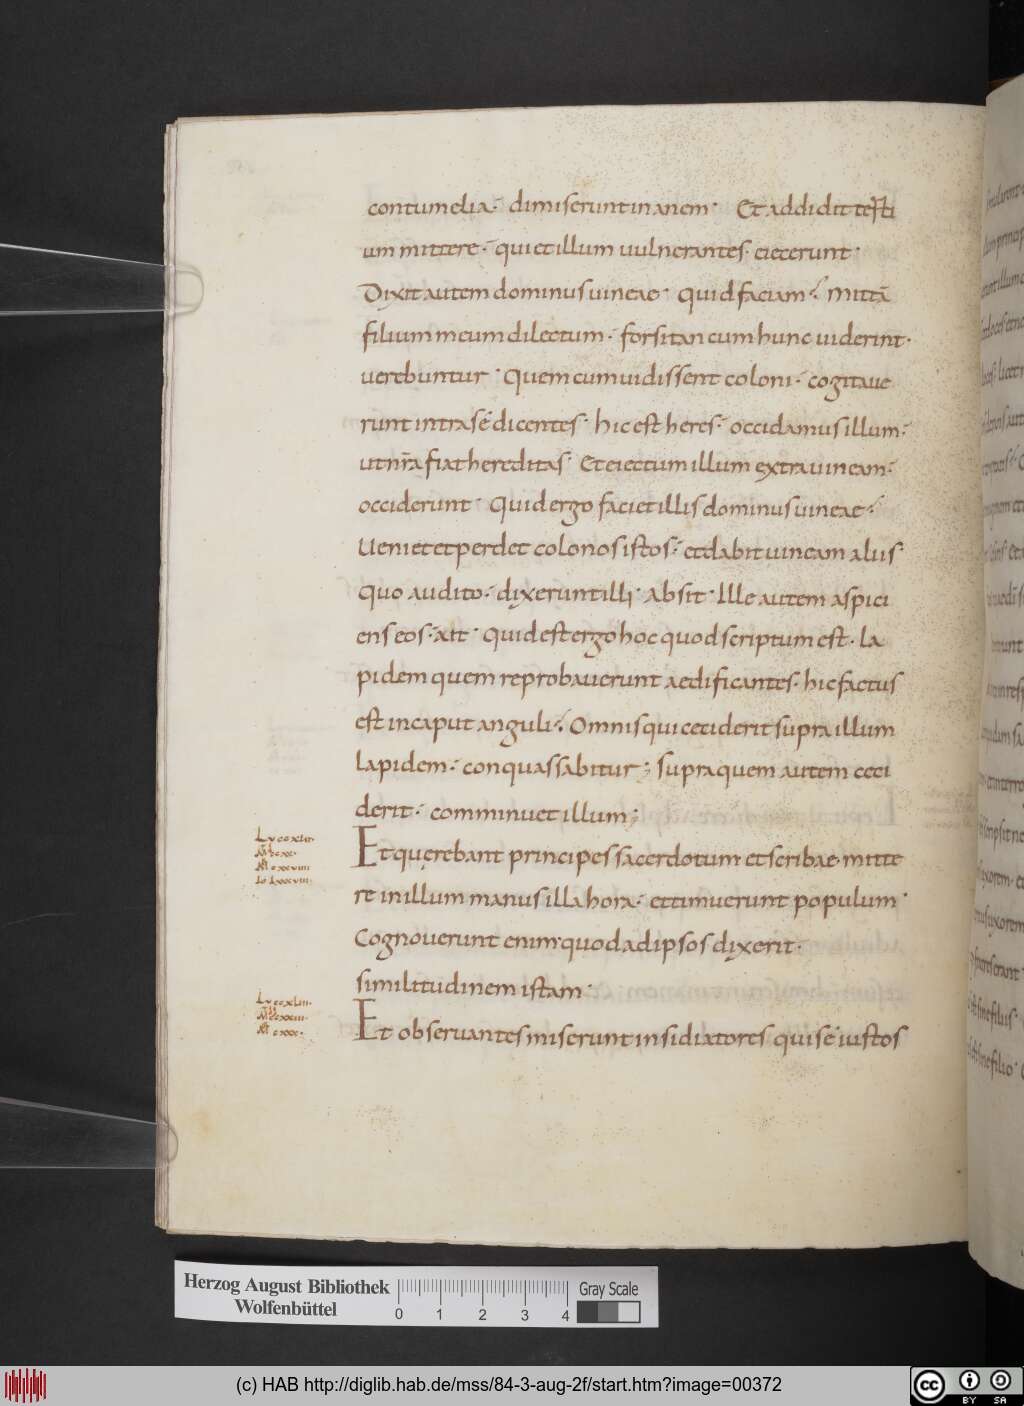 contumelia· dimiserunt inanem· Et addidit terti
um mittere· qui et illum uulnerantes· eiecerunt·
Dixit autem dominus uineae· Quid faciam· Mittā
filium meum dilectum· forsitan cum hunc uiderint·
uerebuntur· Quem cum uidissent coloni· cogitaue
runt intra se dicentes· hic est heres· occidamus illum·
ut nr̄a fiat hereditas· Et eiectum illum extra uineam·
occiderunt· Quid ergo faciet illis dominus uineae·
Ueniet et perdet colonos istos· et dabit uineam aliis
Quo audito· dixerunt illi· absit· Ille autem aspici
ens eos· ait· Quid est ergo hoc quod scriptum est· la
pidem quem reprobauerunt aedificantes· hic factus
est in caput anguli· Omnis qui ceciderit supra illum
lapidem· conquassabitur; supra quem autem ceci
derit· comminuet illum;
Et quęrebant principes sacerdotum et scribae· mitte
re in illum manus illa hora· et timuerunt populum·
Cognouerunt enim quod ad ipsos dixerit·
similitudinem istam·
Et obseruantes miserunt insidiatores qui se iustos
Herzog August Bibliothek
Wolfenbüttel
0 1 2 3 4
Gray Scale
(c) HAB http://diglib.hab.de/mss/84-3-aug-2f/start.htm?image=00372
cc BY SA